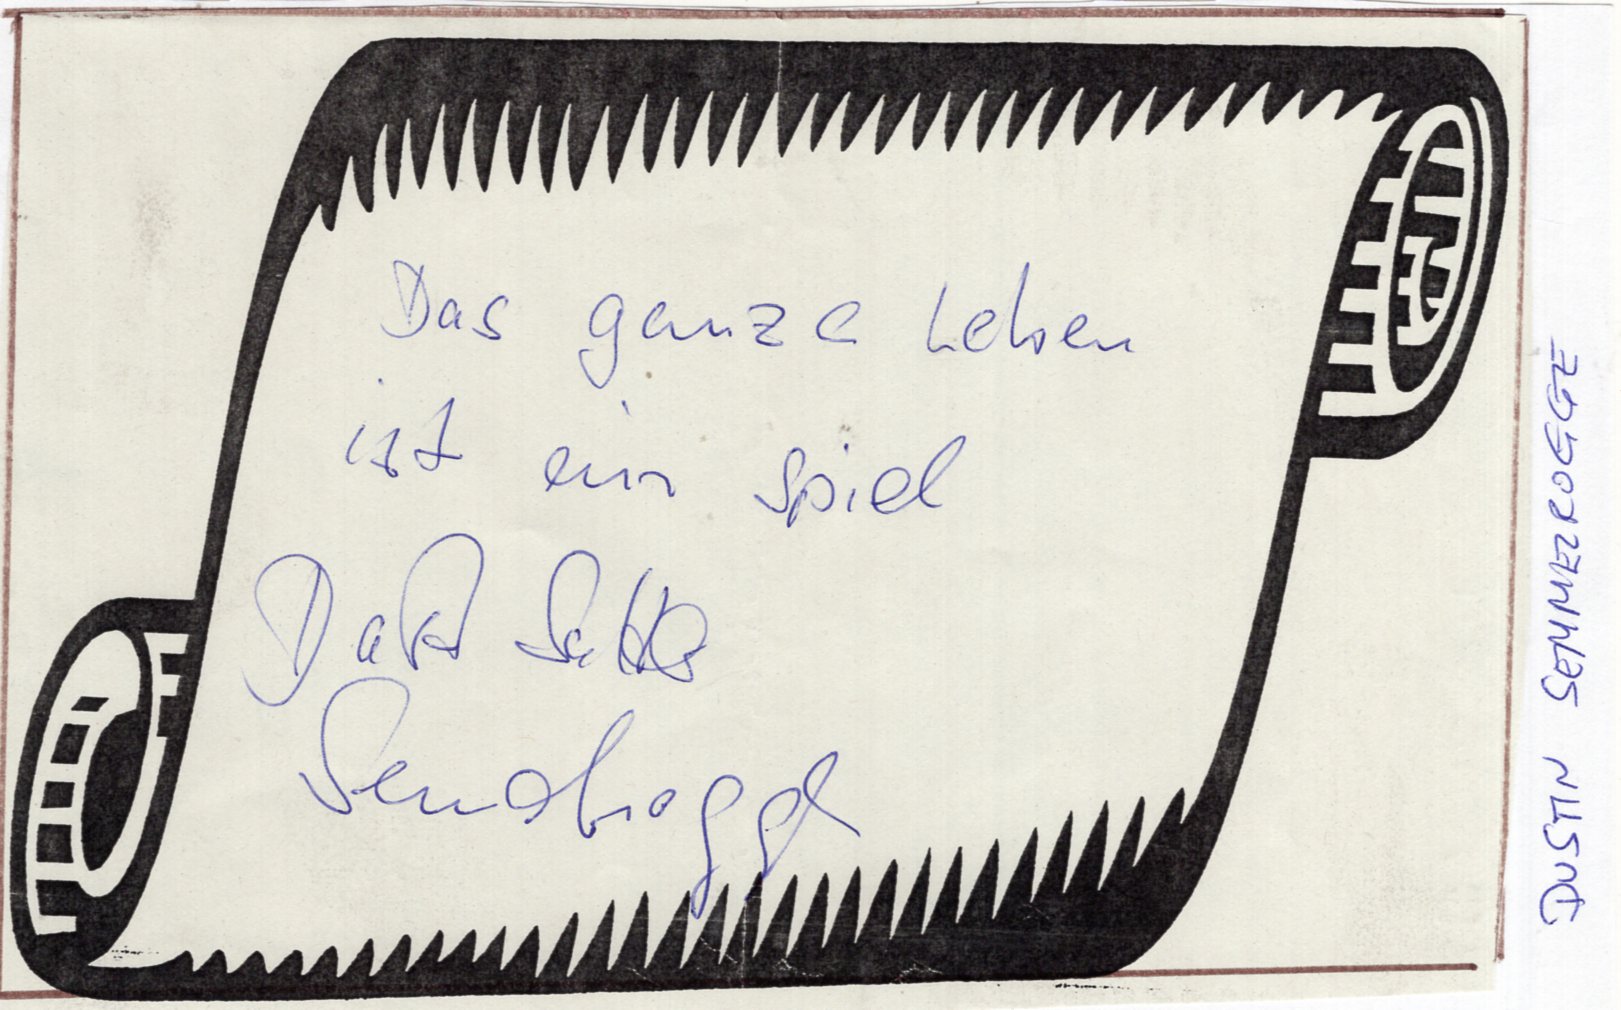 Das ganze Leben
ist ein Spiel
DUSTIN SEMMELROGGE